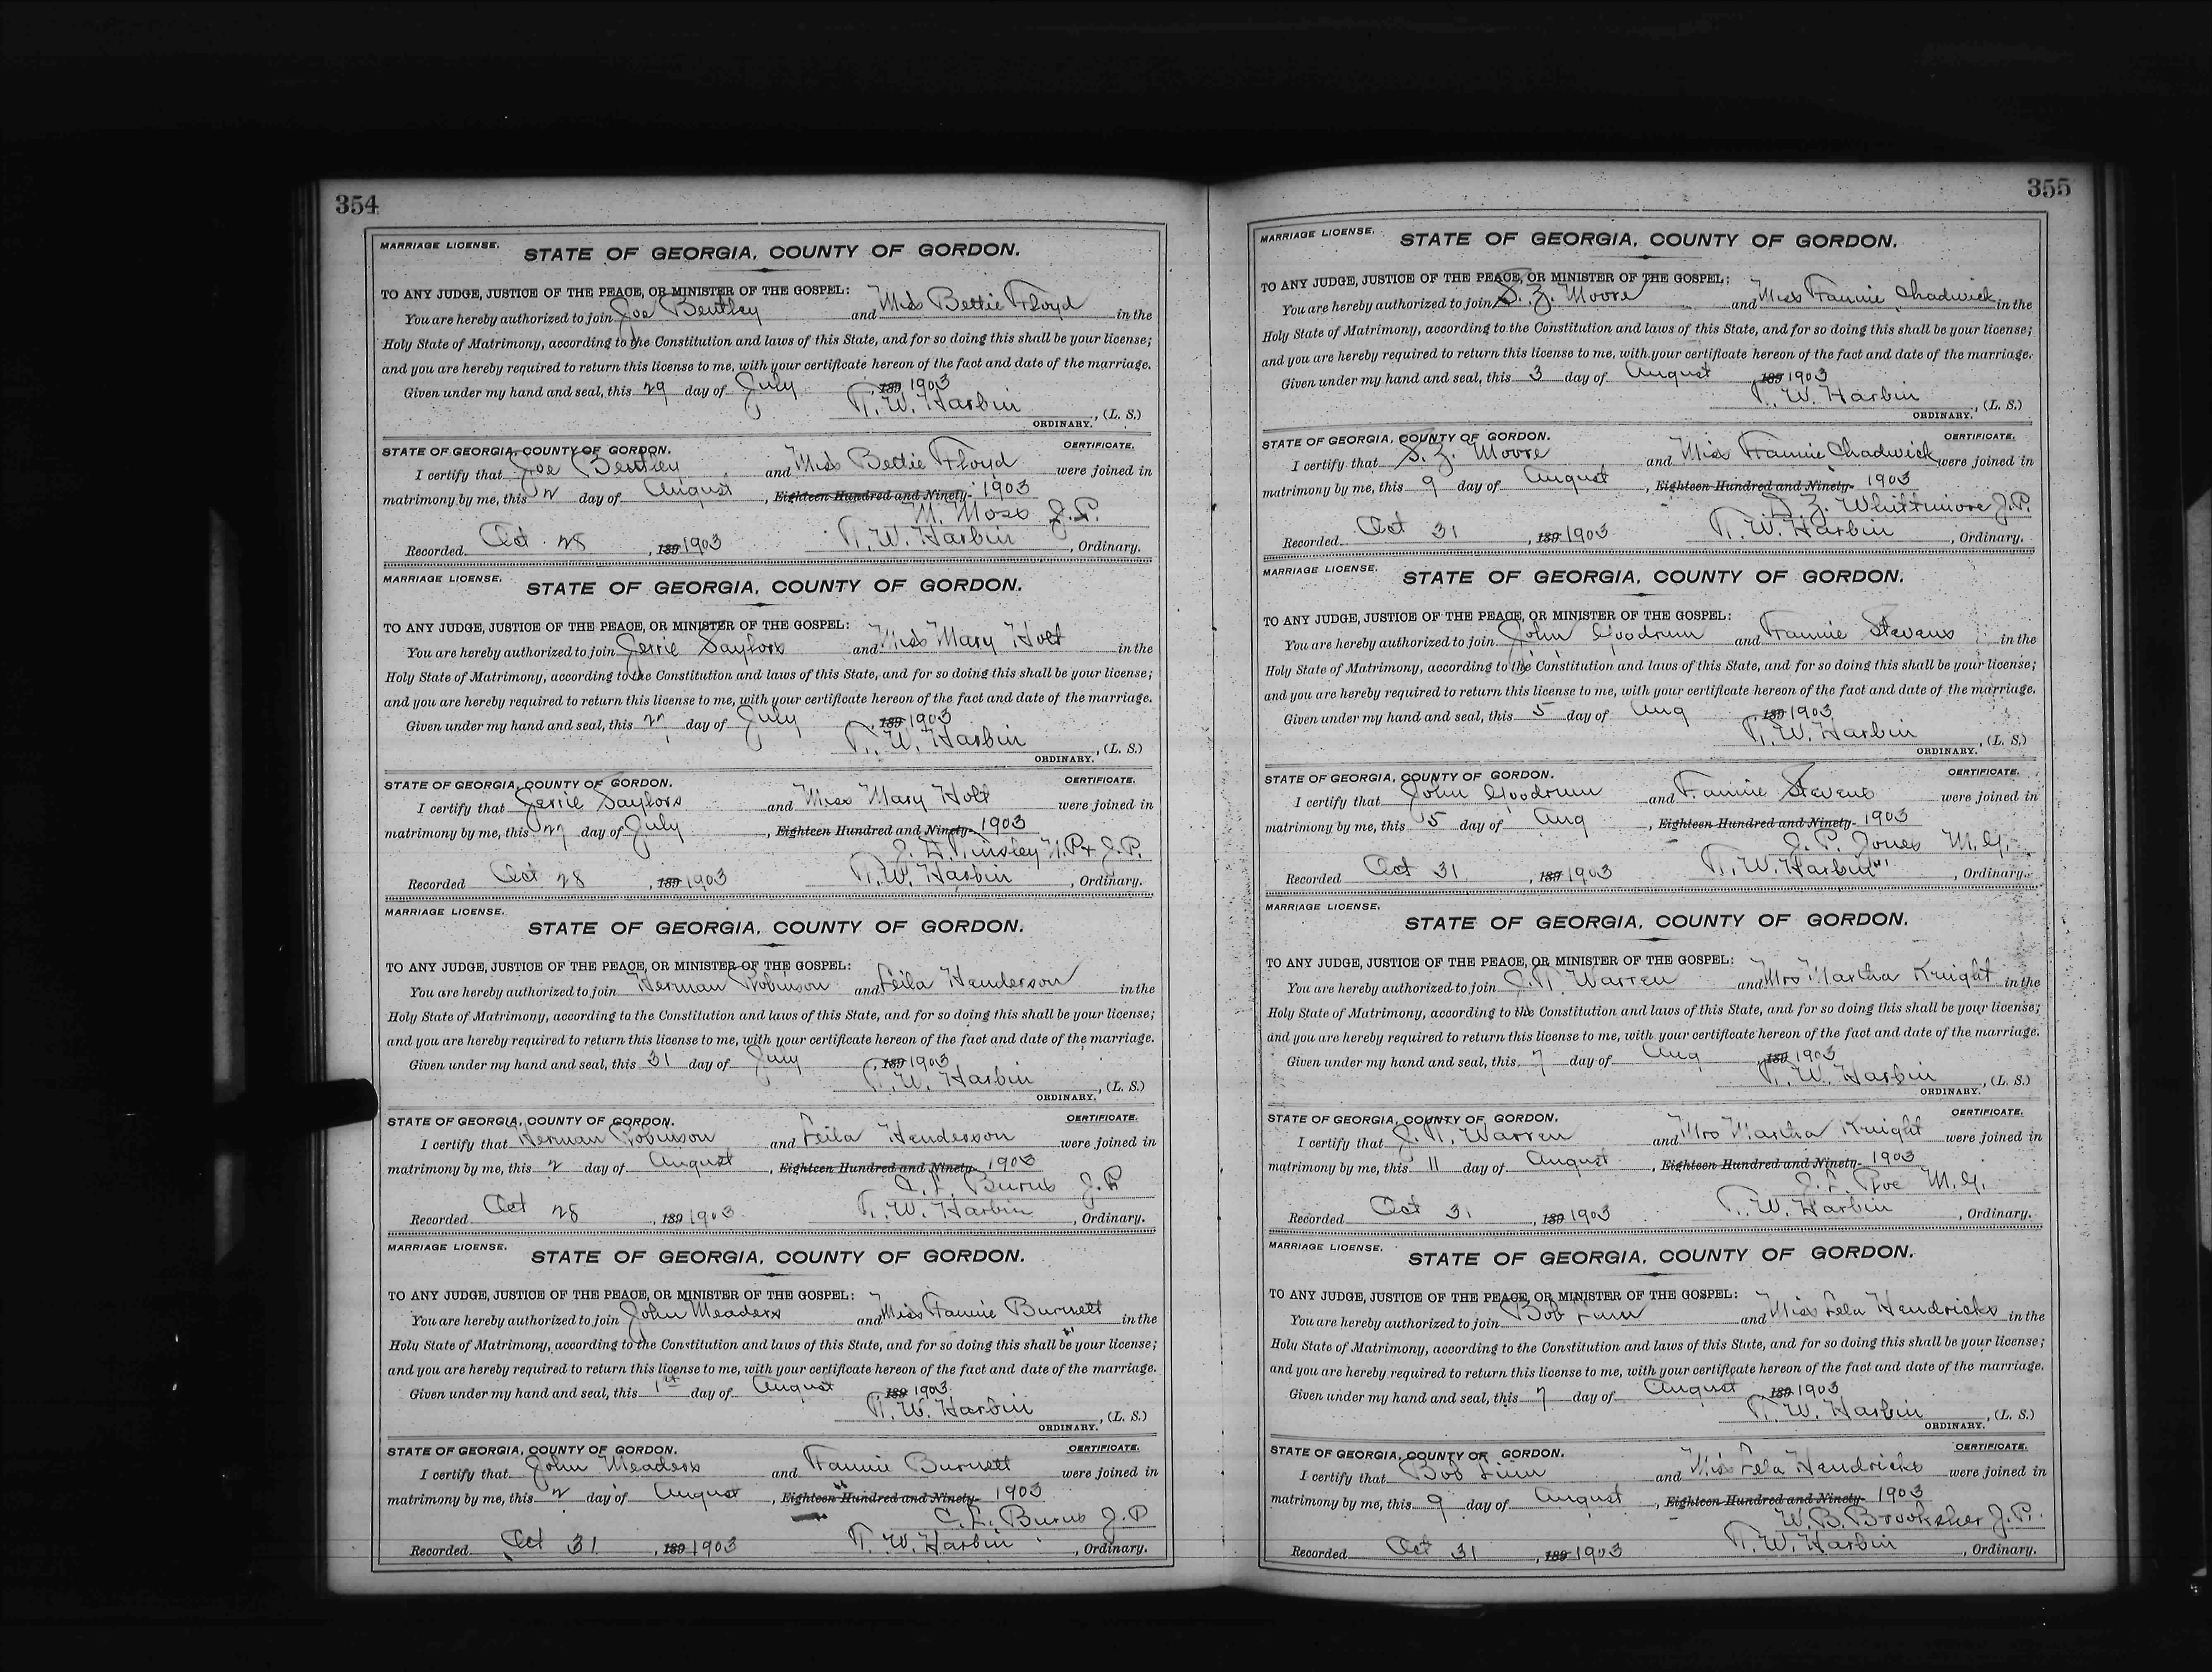 354
MARRIAGE LICENSE.
STATE OF GEORGIA, COUNTY OF GORDON.
TO ANY JUDGE, JUSTICE OF THE PEACE, OR MINISTER OF THE GOSPEL:
You are hereby authorized to join Joe Bentley and Miss Bettie Floyd in the
Holy State of Matrimony, according to the Constitution and laws of this State, and for so doing this shall be your license;
and you are hereby required to return this license to me, with your certificate hereon of the fact and date of the marriage.
Given under my hand and seal, this 29 day of July, 189 1903
T. W. Harbin, (L. S.)
ORDINARY.
STATE OF GEORGIA, COUNTY OF GORDON. CERTIFICATE.
I certify that Joe Bentley and Miss Bettie Floyd were joined in
matrimony by me, this 2 day of August, Eighteen Hundred and Ninety- 1903
M. Moss J.P.
Recorded Oct 28, 189 1903 T. W. Harbin, Ordinary.
MARRIAGE LICENSE.
STATE OF GEORGIA, COUNTY OF GORDON.
TO ANY JUDGE, JUSTICE OF THE PEACE, OR MINISTER OF THE GOSPEL:
You are hereby authorized to join Jerrie Saylors and Miss Mary Holt in the
Holy State of Matrimony, according to the Constitution and laws of this State, and for so doing this shall be your license;
and you are hereby required to return this license to me, with your certificate hereon of the fact and date of the marriage.
Given under my hand and seal, this 27 day of July, 189 1903
T. W. Harbin, (L. S.)
ORDINARY.
STATE OF GEORGIA, COUNTY OF GORDON. CERTIFICATE.
I certify that Jerrie Saylors and Miss Mary Holt were joined in
matrimony by me, this 27 day of July, Eighteen Hundred and Ninety- 1903
J. D. Tinsley N.P. & J.P.
Recorded Oct 28, 189 1903 T. W. Harbin, Ordinary.
MARRIAGE LICENSE.
STATE OF GEORGIA, COUNTY OF GORDON.
TO ANY JUDGE, JUSTICE OF THE PEACE, OR MINISTER OF THE GOSPEL:
You are hereby authorized to join Herman Robinson and Leila Henderson in the
Holy State of Matrimony, according to the Constitution and laws of this State, and for so doing this shall be your license;
and you are hereby required to return this license to me, with your certificate hereon of the fact and date of the marriage.
Given under my hand and seal, this 31 day of July, 189 1903
T. W. Harbin, (L. S.)
ORDINARY.
STATE OF GEORGIA, COUNTY OF GORDON. CERTIFICATE.
I certify that Herman Robinson and Leila Henderson were joined in
matrimony by me, this 2 day of August, Eighteen Hundred and Ninety- 1903
C. L. Burns J.P.
Recorded Oct 28, 189 1903 T. W. Harbin, Ordinary.
MARRIAGE LICENSE.
STATE OF GEORGIA, COUNTY OF GORDON.
TO ANY JUDGE, JUSTICE OF THE PEACE, OR MINISTER OF THE GOSPEL:
You are hereby authorized to join John Meaders and Miss Fannie Burnett in the
Holy State of Matrimony, according to the Constitution and laws of this State, and for so doing this shall be your license;
and you are hereby required to return this license to me, with your certificate hereon of the fact and date of the marriage.
Given under my hand and seal, this 1st day of August, 189 1903
T. W. Harbin, (L. S.)
ORDINARY.
STATE OF GEORGIA, COUNTY OF GORDON. CERTIFICATE.
I certify that John Meaders and Fannie Burnett were joined in
matrimony by me, this 2 day of August, Eighteen Hundred and Ninety- 1903
C. L. Burns J.P
Recorded Oct 31, 189 1903 T. W. Harbin, Ordinary.
355
MARRIAGE LICENSE.
STATE OF GEORGIA, COUNTY OF GORDON.
TO ANY JUDGE, JUSTICE OF THE PEACE, OR MINISTER OF THE GOSPEL:
You are hereby authorized to join S. Z. Moore and Miss Fannie Chadwick in the
Holy State of Matrimony, according to the Constitution and laws of this State, and for so doing this shall be your license;
and you are hereby required to return this license to me, with your certificate hereon of the fact and date of the marriage.
Given under my hand and seal, this 3 day of August, 189 1903
T. W. Harbin, (L. S.)
ORDINARY.
STATE OF GEORGIA, COUNTY OF GORDON. CERTIFICATE.
I certify that S. Z. Moore and Miss Fannie Chadwick were joined in
matrimony by me, this 9 day of August, Eighteen Hundred and Ninety- 1903
D. Z. Whittimore J.P.
Recorded Oct 31, 189 1903 T. W. Harbin, Ordinary.
MARRIAGE LICENSE.
STATE OF GEORGIA, COUNTY OF GORDON.
TO ANY JUDGE, JUSTICE OF THE PEACE, OR MINISTER OF THE GOSPEL:
You are hereby authorized to join John Goodrum and Fannie Stevens in the
Holy State of Matrimony, according to the Constitution and laws of this State, and for so doing this shall be your license;
and you are hereby required to return this license to me, with your certificate hereon of the fact and date of the marriage.
Given under my hand and seal, this 5 day of Aug, 189 1903
T. W. Harbin, (L. S.)
ORDINARY.
STATE OF GEORGIA, COUNTY OF GORDON. CERTIFICATE.
I certify that John Goodrum and Fannie Stevens were joined in
matrimony by me, this 5 day of Aug, Eighteen Hundred and Ninety- 1903
J. P. Jones M.G.
Recorded Oct 31, 189 1903 T. W. Harbin, Ordinary.
MARRIAGE LICENSE.
STATE OF GEORGIA, COUNTY OF GORDON.
TO ANY JUDGE, JUSTICE OF THE PEACE, OR MINISTER OF THE GOSPEL:
You are hereby authorized to join Warren and Mrs Martha Knight in the
Holy State of Matrimony, according to the Constitution and laws of this State, and for so doing this shall be your license;
and you are hereby required to return this license to me, with your certificate hereon of the fact and date of the marriage.
Given under my hand and seal, this 7 day of Aug, 189 1903
T. W. Harbin, (L. S.)
ORDINARY.
STATE OF GEORGIA, COUNTY OF GORDON. CERTIFICATE.
I certify that Warren and Mrs Martha Knight were joined in
matrimony by me, this 11 day of August, Eighteen Hundred and Ninety- 1903
J. L. Poe M.G.
Recorded Oct 31, 189 1903 T. W. Harbin, Ordinary.
MARRIAGE LICENSE.
STATE OF GEORGIA, COUNTY OF GORDON.
TO ANY JUDGE, JUSTICE OF THE PEACE, OR MINISTER OF THE GOSPEL:
You are hereby authorized to join Bob Linn and Miss Lela Hendricks in the
Holy State of Matrimony, according to the Constitution and laws of this State, and for so doing this shall be your license;
and you are hereby required to return this license to me, with your certificate hereon of the fact and date of the marriage.
Given under my hand and seal, this 7 day of August, 189 1903
T. W. Harbin, (L. S.)
ORDINARY.
STATE OF GEORGIA, COUNTY OF GORDON. CERTIFICATE.
I certify that Bob Linn and Miss Lela Hendricks were joined in
matrimony by me, this 9 day of August, Eighteen Hundred and Ninety- 1903
W. B. Brooksher J.P.
Recorded Oct 31, 189 1903 T. W. Harbin, Ordinary.